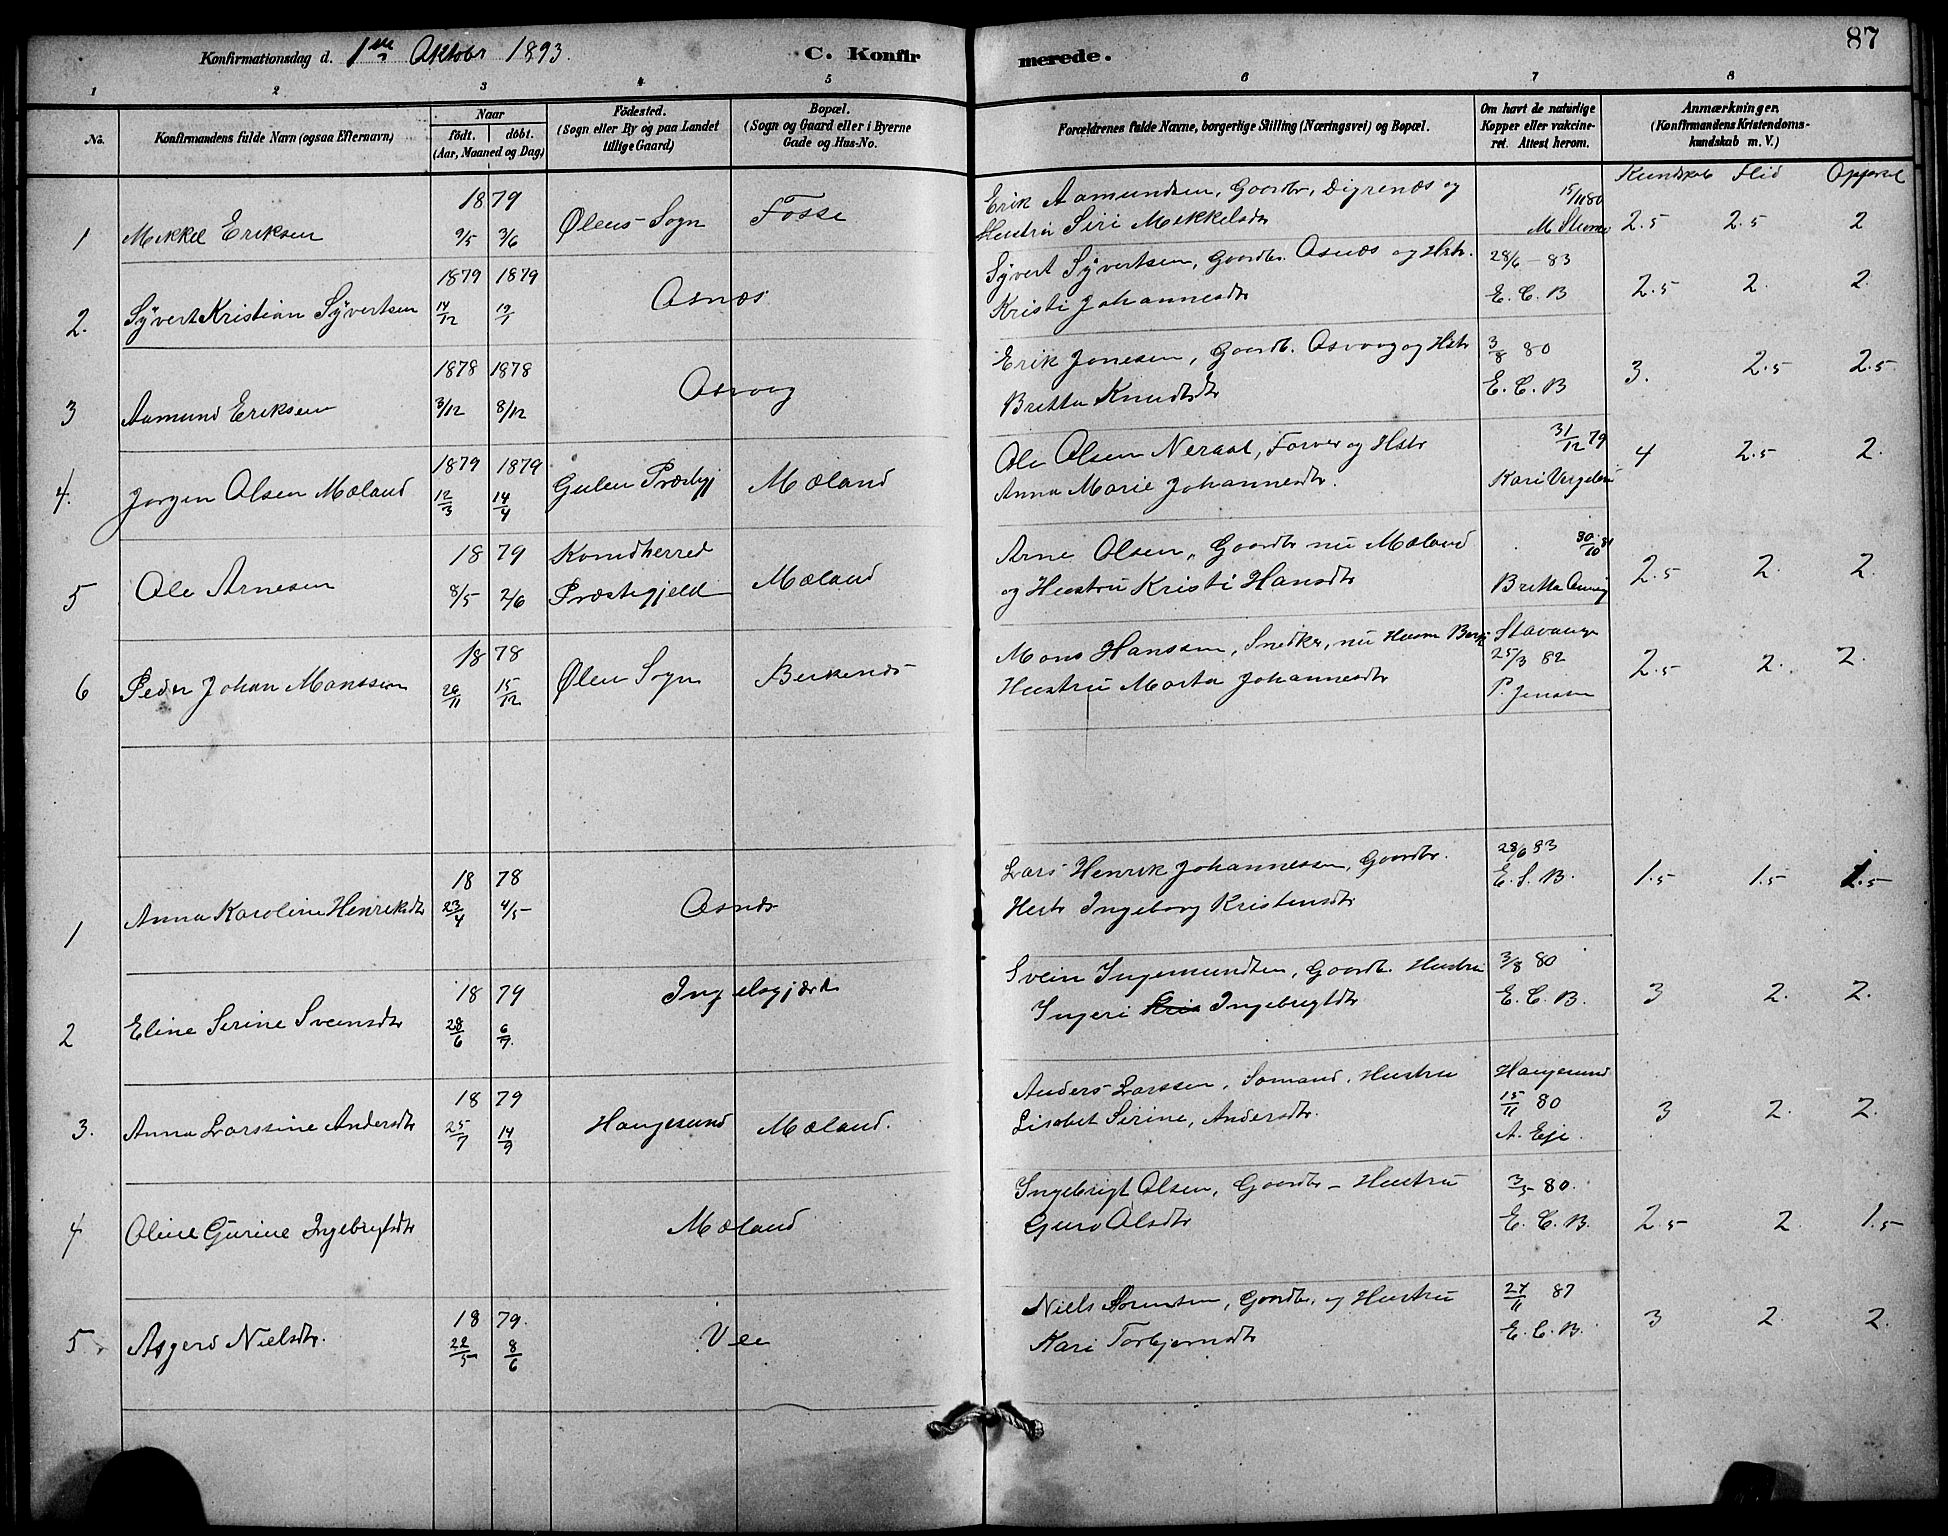 87
Konfirmationsdag d. 1ste Oktobr 1893.
C. Konfirmerede.
1 2 3 4 5 6 7 8
No.
Konfirmandens fulde Navn (ogsaa Efternavn)
Naar
födt. döbt.
(Aar, Maaned og Dag)
Födested.
(Sogn eller By og paa Landet
tillige Gaard)
Bopæl.
(Sogn og Gaard eller i Byerne
Gade og Hus-No.
Forældrenes fulde Navne, borgerlige Stilling (Næringsvei) og Bopæl.
Om havt de naturlige
Kopper eller vakcineret. Attest herom.
Anmærkninger.
(Konfirmandens Kristendomskundskab m. V.)
Kundskab Flid Opførsel
1 Mikkel Eriksen 1879 9/5 3/6 Ølens Sogn Fosse
Erik Aamundsen, Gaardbr, Digrenæs og
Hustru Siri Mikkelsdtr
15/11 80
2.5 2.5 2
2. Syvert Kristian Syvertsen 1879 14/12 1879 Asnæs
Syvert Syvertsen, Gaardbr. Asnæs og Hstr.
Kristi Johannesdtr
28/6 - 83
E. C. B
2.5 2. 2.
3 Aamund Eriksen 1878 3/12 1878 8/12 Asvaag
Erik Jonesen, Gaardb. Asvaag og Hstr
Britta Knudsdtr
3/8 80
E. C. B
3. 2.5 2.5
4. Jørgen Olsen Mæland 1879 12/3 1879 14/4 Gulen Præstgj Mæland
Ole Olsen Neraal, Farver og Hstr
Anna Marie Johannesdtr.
31/12 79
Kari
4 2.5 2.
5 Ole Arnesen 1879 8/5 2/6 Kvindherred
Præstegjeld Mæland
Arne Olsen, Gaardbr nu Mæland
og Hustru Kristi Hansdtr
30/10 81
Britta
2.5 2. 2.
6 Peder Johan Monssen 1878 26/11 15/12 Ølen Sogn Birkenæs
Mons Hanssen, Snedker, nu
Hustru Marta Johannesdtr
Stavanger
25/3 82
P. Jensen
2.5 2. 2.
1 Anna Karoline Henriksdtr 1878 23/4 4/5 Asnæs
Lars Henrik Johannessen, Gaardbr.
Hstr Ingeborg Kristensdtr
28/6 83
E. S. B.
1.5 1.5 1.5
2 Eline Serine Sveinsdtr 1879 28/6 6/7 Ingelsgjærd
Svein Ingemundsen, Gaardb. Hustru
Ingeri Kris Ingebrigtdtr
3/8 80
E. C. B.
3 2. 2.
3. Anna Larssine Andersdtr 1879 25/7 14/9 Haugesund Mæland.
Anders Larssen, Sømand, Hustru
Lisabet Serine, Andersdtr.
Haugesund
15/11 80
A. Eje.
3 2. 2.
4 Oline Gurine Ingebrigtsdtr Mæland
Ingebrigt Olsen, Gaardbr - Hustru
Guro Olsdtr
3/5 80.
E. C. B.
2.5 2. 1.5
5 Asgerd Nielsdtr. 1879. 22/5 8/6 Vee
Niels Arentsen, Gaardbr, og Hustru
Kari Torbjørnsdtr
27/11 87
E. C. B.
3 2. 2.